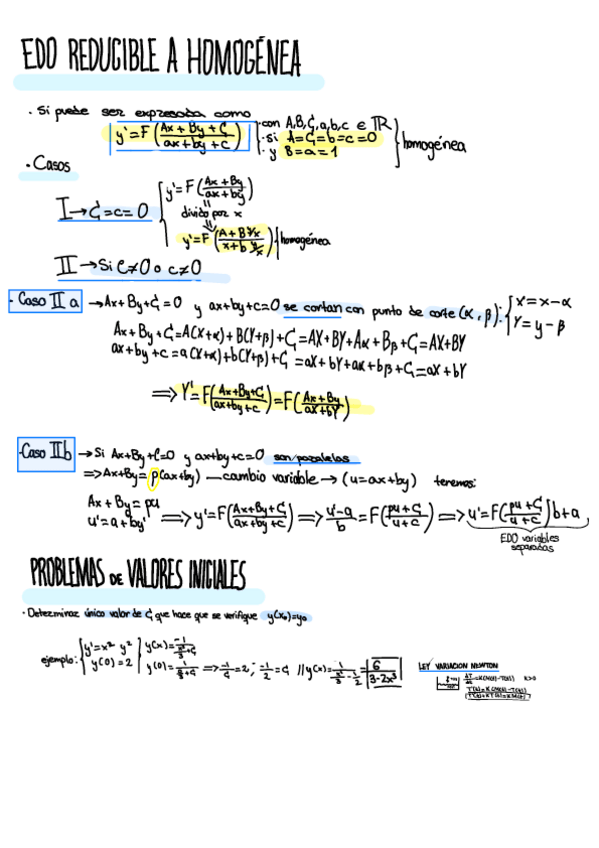 EDO REDUCIBLE A HOMOGÉNEA
· Si puede ser expresada como
y'=F(Ax+By+C/ax+by+c) · con A,B,C,a,b,c ∈ ℝ · si A=C=b=c=0 · y B=a=1 } homogénea
· Casos
I → C=c=0 { y'=F(Ax+By/ax+by)
divido por x
y'=F(A+B y/x / x+b y/x) } homogénea
II → Si C≠0 o c≠0
· Caso IIa → Ax+By+C=0 y ax+by+c=0 se cortan con punto de corte (α,β): { X=x-α
Y=y-β
Ax+By+C=A(X+α)+B(Y+β)+C=AX+BY+Aα+Bβ+C=AX+BY
ax+by+c=a(X+α)+b(Y+β)+C=aX+bY+aα+bβ+C=aX+bY
⇒ Y'=F(Ax+By+C/ax+by+c)=F(Ax+By/ax+bY)
· Caso IIb → Si Ax+By+C=0 y ax+by+c=0 son paralelas
⇒ Ax+By=p(ax+by) — cambio variable → (u=ax+by) teremos:
Ax+By=pu
u'=a+by' ⇒ y'=F(Ax+By+C/ax+by+c) ⇒ u'-a/b=F(pu+C/u+c) ⇒ u'=F(pu+C/u+c)b+a
EDO variables
separadas
PROBLEMAS DE VALORES INICIALES
· Determinar único valor de C que hace que se verifique y(x₀)=y₀
ejemplo: { y'=x² y² } y(x)=-1/x³/3+C
y(0)=2 } y(0)=1/0/3+C ⇒ -1/C=2; -1/2=C // y(x)=1/x³/3-1/2=6/3-2x³
LEY VARIACION NEWTON